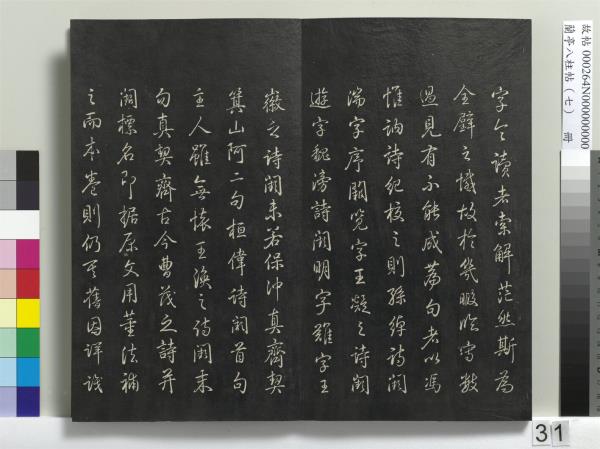 故帖 000264N000000000
蘭亭八柱帖（七） 冊
字令讀者索解茫然斯為
全璧之憾故於幾暇臨寫數
過見有不能成篇句者以馮
惟訥詩紀校之則孫綽詩闕
湍字序闕覽字王凝之詩闕
遊字魏滂詩闕明字雖字王
徽之詩闕末若保沖真齊契
箕山阿二句桓偉詩闕首句
主人雖無懷王渙之詩闕末
句真契齊古今曹茂之詩並
闕標名即據原文用董法補
之而本卷則仍其舊因詳識
31